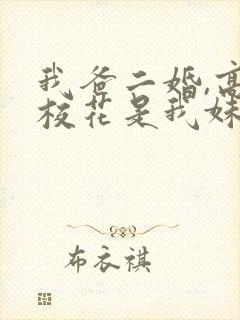 我爸二婚,高
校花是我妹
布衣祺